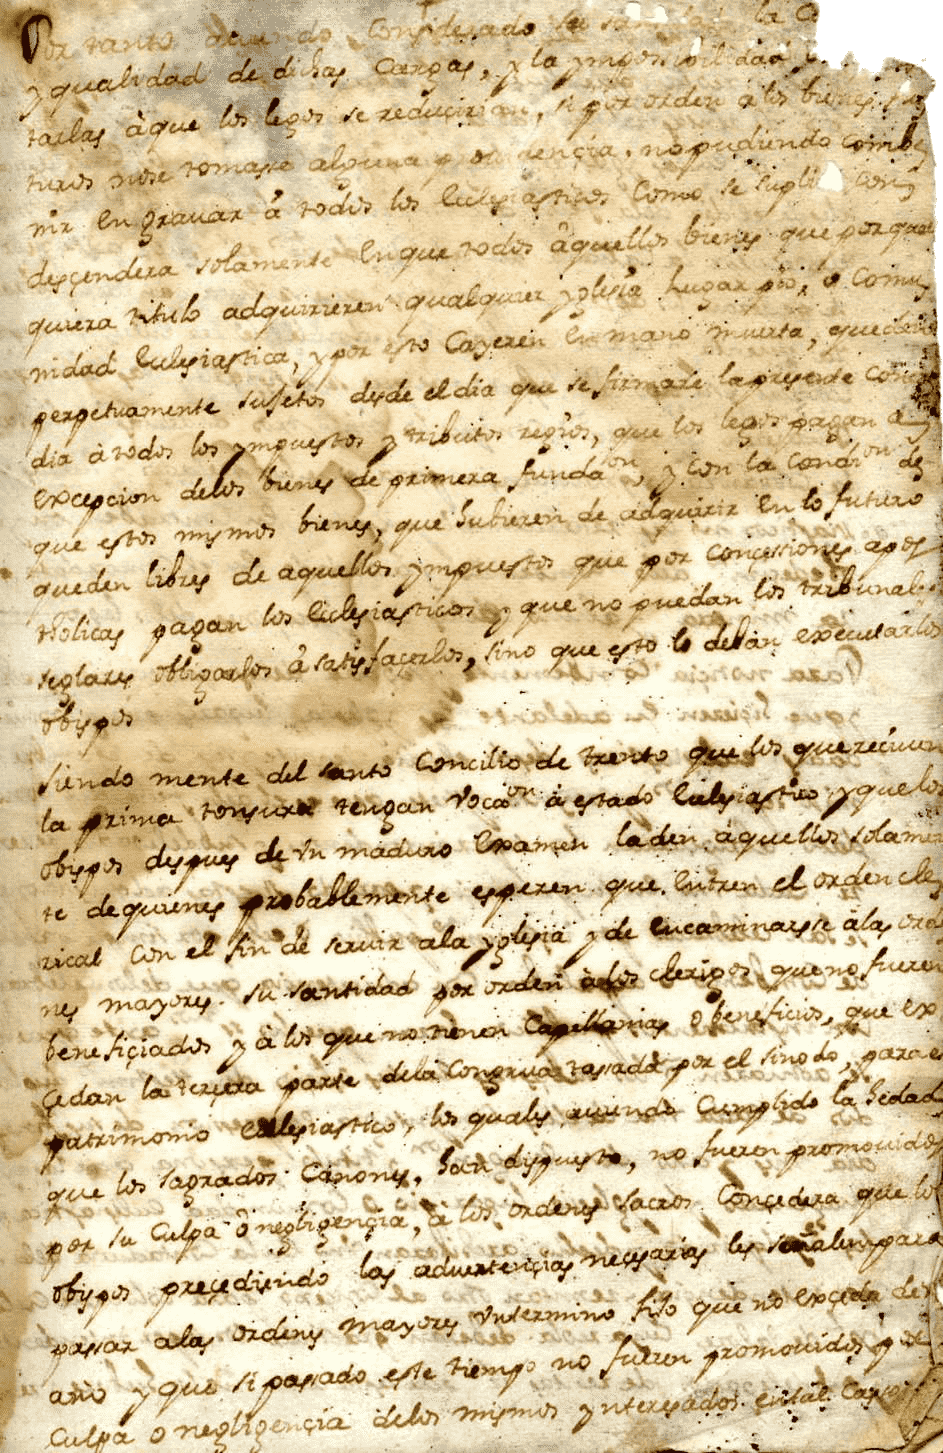 Por tanto auiendo considerado su santidad la
y qualidad de dichas cargas, y la ymposivilidad
tarlas à que los legos se reduçirian, si por orden à los bienes fu,
turos nose tomase alguna providençia, no pudiendo combe
nir en gravar â todos los Eclesiasticos Como se suplica Con,
desçendera solamente En que todos âquellos bienes que por qual
quiera titulo adquirieren qualquier yglesia lugar pio, o Comu,
nidad Eclesiastica, y por esto Cayeren En mano muerta, queden
perpetuamente sujetos desde el dia que se firmare la presente Conc
dia à todos los ympuestos y tributos regios, que los legos pagan a,
excepcion delos bienes de primera funda^on, y con la Condi^on de
que estos mismos bienes, que hubieren de adquirir En lo futuro
queden libres de aquellos ympuestos que por Conçessiones apos
tholicas pagan los Eclesiasticos y que no puedan los tribunales
seglares obligarlos â satisfaçerlos, sino que esto lo deban executar los
obispos
siendo mente del santo Concilio de trento que los que reciuen
la prima tonsura tengan vocâ^on à estado Eclesiastico y que los
obispos despues de vn maduro Examen la den âquellos solamen
te de quienes probablemente esperen que Entren el orden cle,
rical Con el fin de servir ala yglesia y de Encaminarse àlas orde
nes mayores. su santidad por orden à los clerigos que no fueren
benefiçiados y à los que no tienen Capellanias o beneficios, que ex
çedan la terçera parte dela Congrua tassada por el sinodo, para el
patrimonio eclesiastico, los quales auiendo Cumplido la hedad
que los sagrados Cânones, han dispuesto, no fueren promouidos
por su Culpa ô negligençia, â los ordenes sacros Conçedera que los
obispos preçediendo las aduertençias neçesarias les señalen para
passar alas ordenes mayores vn termino fijo que no exçeda de vn
año y que si passado este tiempo no fueren promouidos por
Culpa o negligençia delos mismos ynteresados en tal Caso